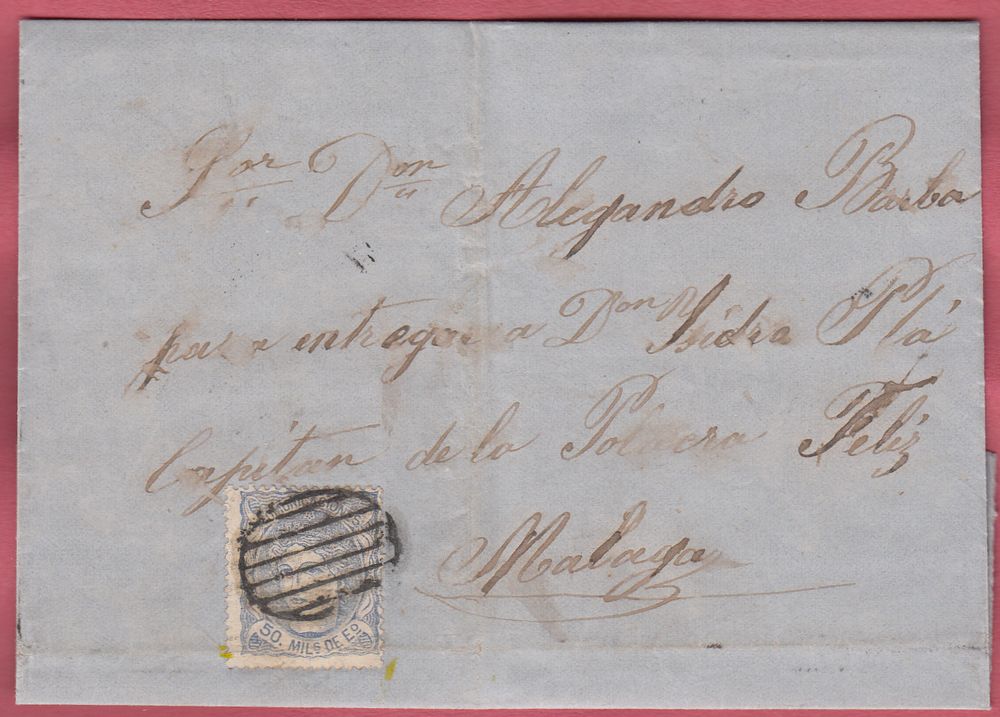 Por Don Alegandro Barba
para entregar a Don Isidro Plá
Capitan de la Polacra Feliz
Malaga
COMUNICACIONES
50. MILS DE Eo